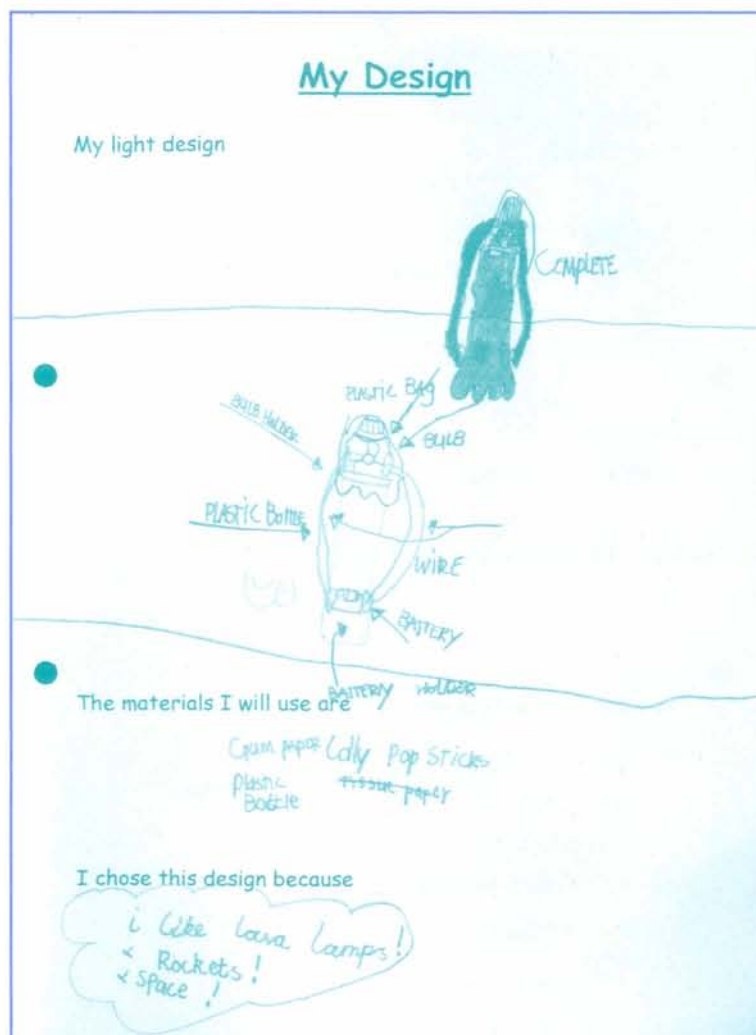 My Design
My light design
COMPLETE
PLASTIC BAG
BULB HOLDER
BULB
PLASTIC BOTTLE
WIRE
BATTERY
BATTERY HOLDER
The materials I will use are
Lolly Pop Sticks
plastic tissue paper
Bottle
I chose this design because
i like lava lamps!
& Rockets!
& Space!